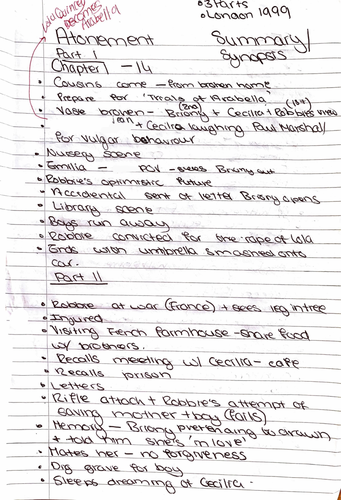 Lola Quincey
becomes
Arabella
• 3 Parts
• London 1999
Atonement Summary/
Synopsis
Part 1
Chapter 1 - 14
• Cousins come - from broken home
• Prepare for 'Trials of Arabella
• Vase broken - Briony (2nd) + Cecilia + Robbie's views (1st)
• + Cecilia laughing Paul Marshall/
for vulgar behaviour
• Nursery scene
• Emilia - POV - Briony out
• Robbie's optimistic future
• Accidental sent of letter Briony opens
• Library scene
• Boys run away
• Robbie convicted for the rape of Lola
• Ends with umbrella smashed onto
car.
Part II
• Robbie at war (France) + sees leg in tree
• Injured
• Visiting Fench farmhouse - share food
w/ brothers.
• Recalls meeting w/ Cecilia - cafe
• Recalls prison
• Letters
• Rifle attach + Robbie's attempt of
saving mother + boy (fails)
• Memory - Briony pretending to drown
+ told him she's 'in love'
• Hates her - no forgiveness
• Dig grave for boy
• Sleeps dreaming of Cecilia.